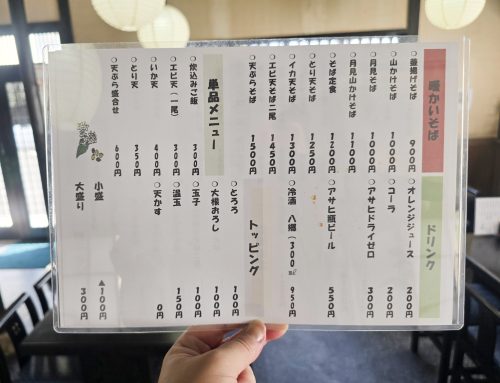 暖かいそば
○釜揚げそば 900円
○山かけそば 1000円
○月見そば 1000円
○月見山かけそば 1100円
○そば定食 1200円
○とり天そば 1250円
○イカ天そば 1300円
○エビ天そば二尾 1450円
○天ぷらそば 1500円
単品メニュー
○炊込みご飯 300円
○エビ天(一尾) 300円
○いか天 400円
○とり天 350円
○天ぷら盛合せ 600円
ドリンク
○オレンジジュース 200円
○コーラ 200円
○アサヒドライゼロ 300円
○アサヒ瓶ビール 550円
○冷酒 八郷(300㎖) 950円
トッピング
○とろろ 100円
○大根おろし 100円
○玉子 100円
○温玉 150円
○天かす 0円
小盛 ▲100円
大盛り 300円